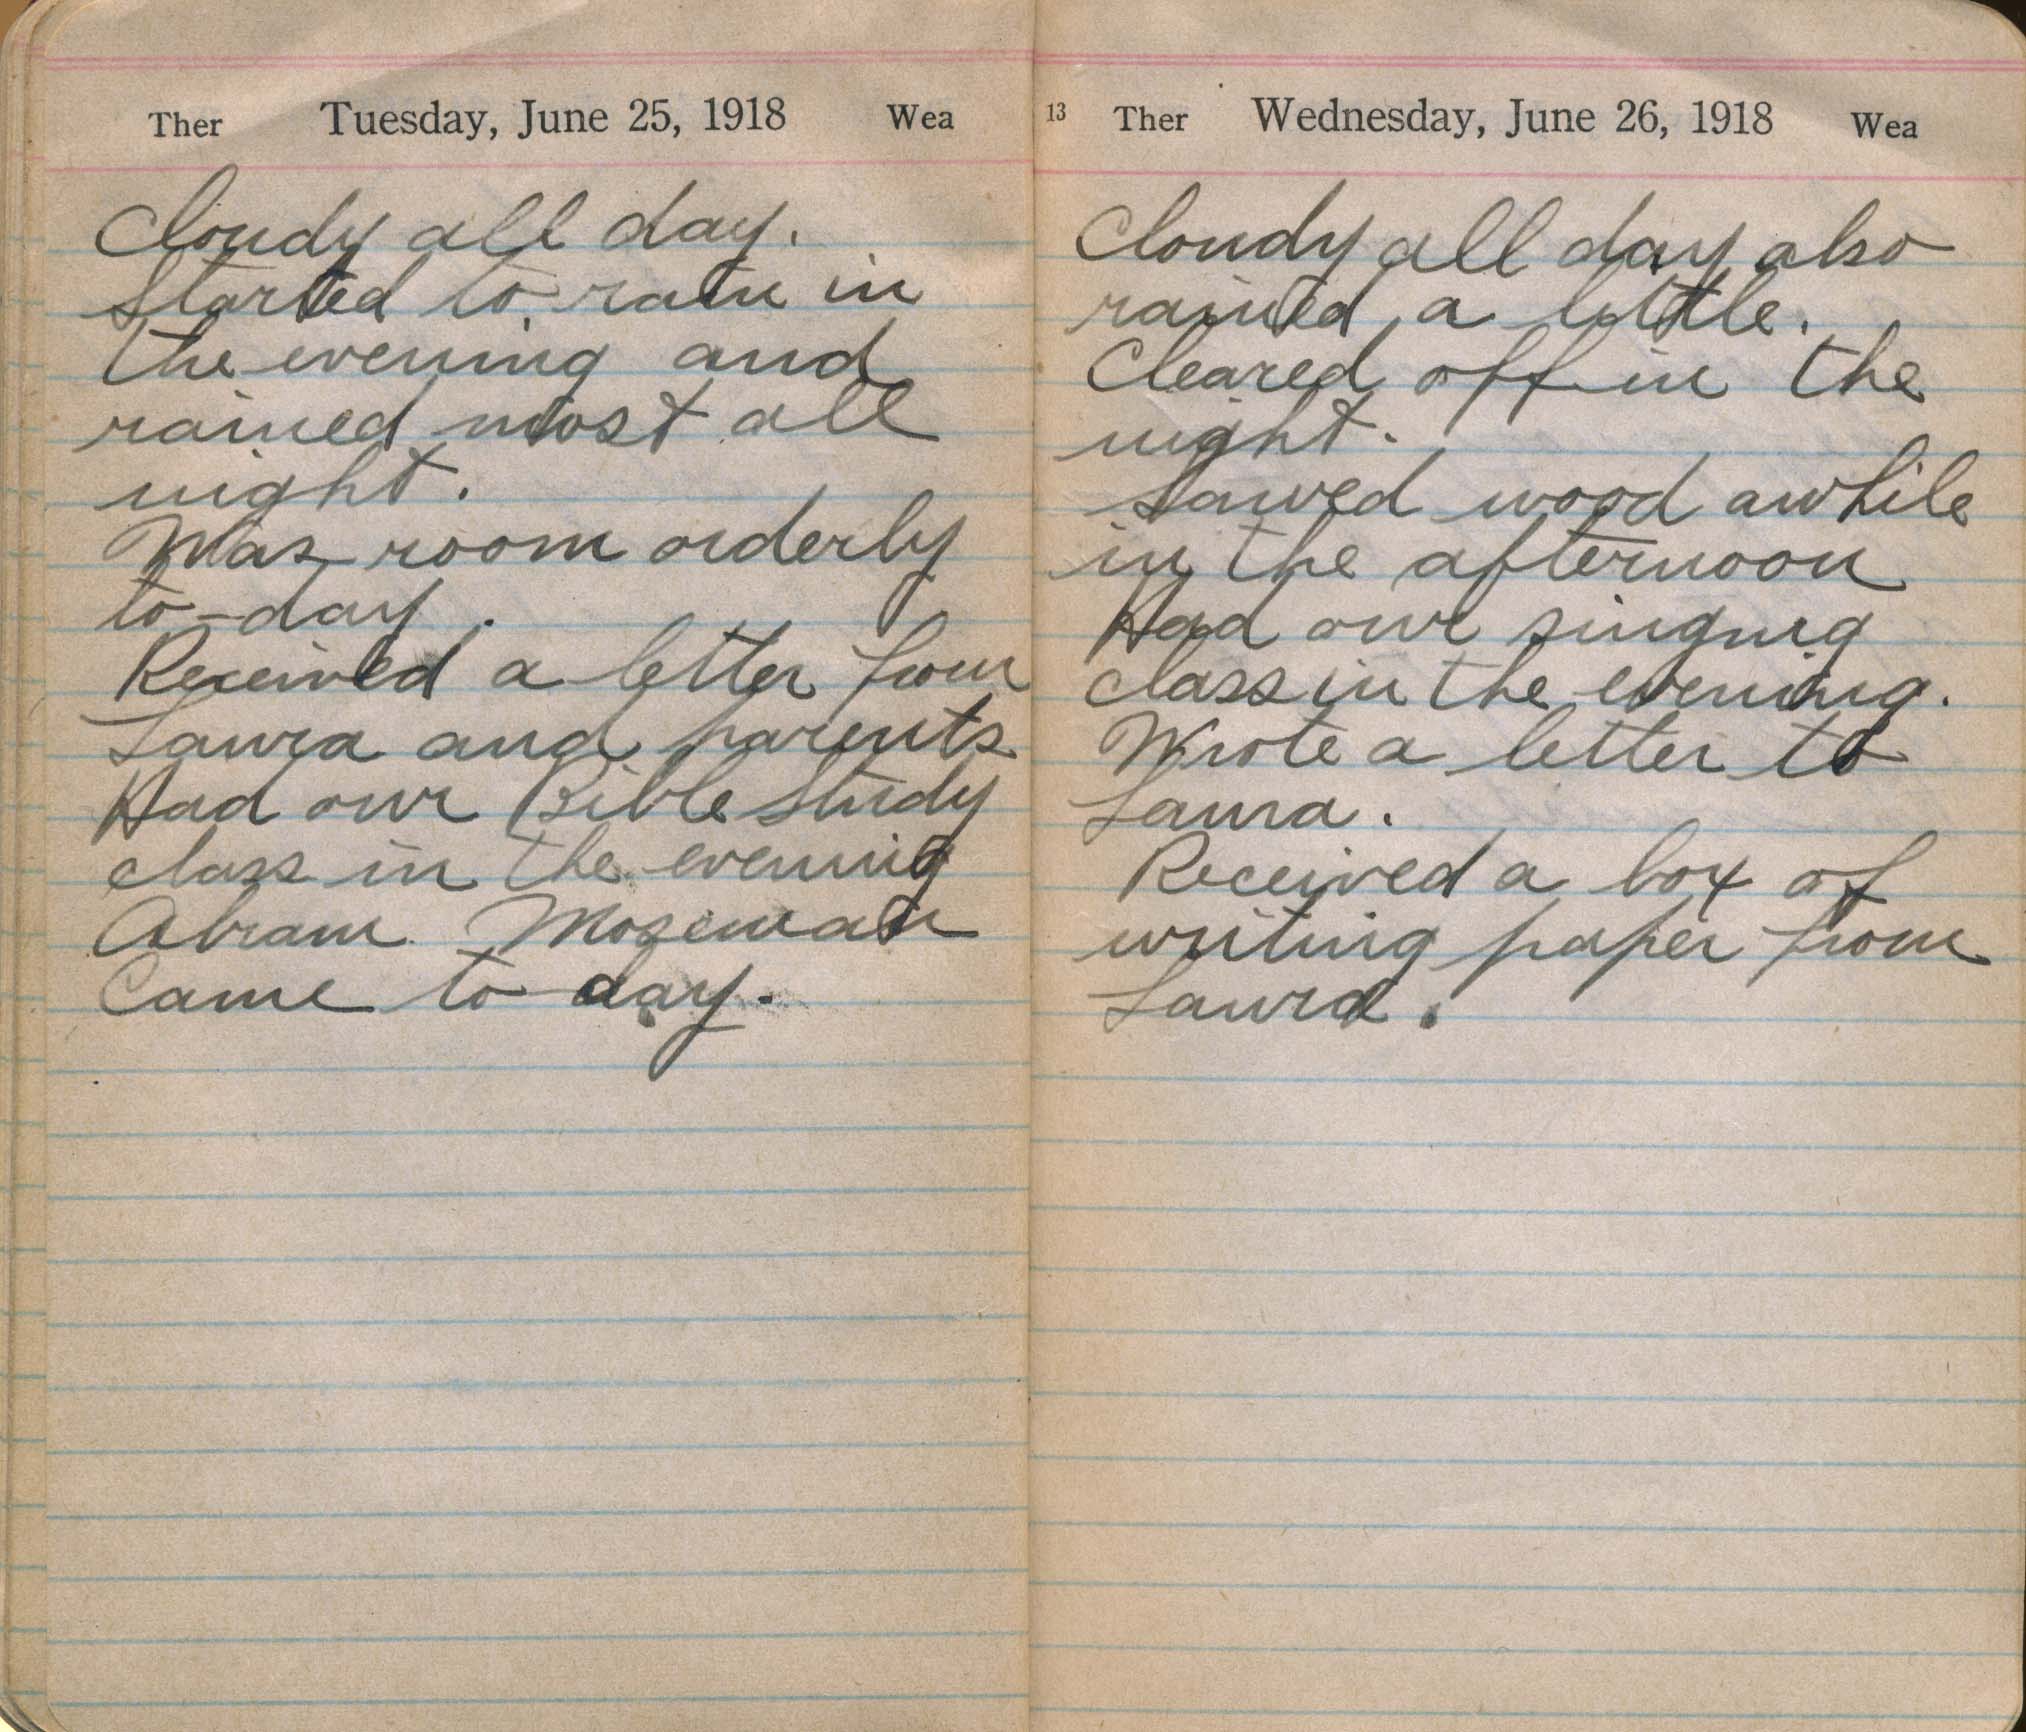 Ther Tuesday, June 25, 1918 Wea
Cloudy all day.
Started to rain in
the evening and
rained most all
night.
Was room orderly
to-day.
Received a letter from
Laura and parents
Had our Bible Study
class in the evening
Abram Moseman
Came to-day.
13 Ther Wednesday, June 26, 1918 Wea
Cloudy all day also
rained a little.
Cleared off in the
night.
Sawed wood awhile
in the afternoon
Had our singing
class in the evening.
Wrote a letter to
Laura.
Received a box of
writing paper from
Laura.